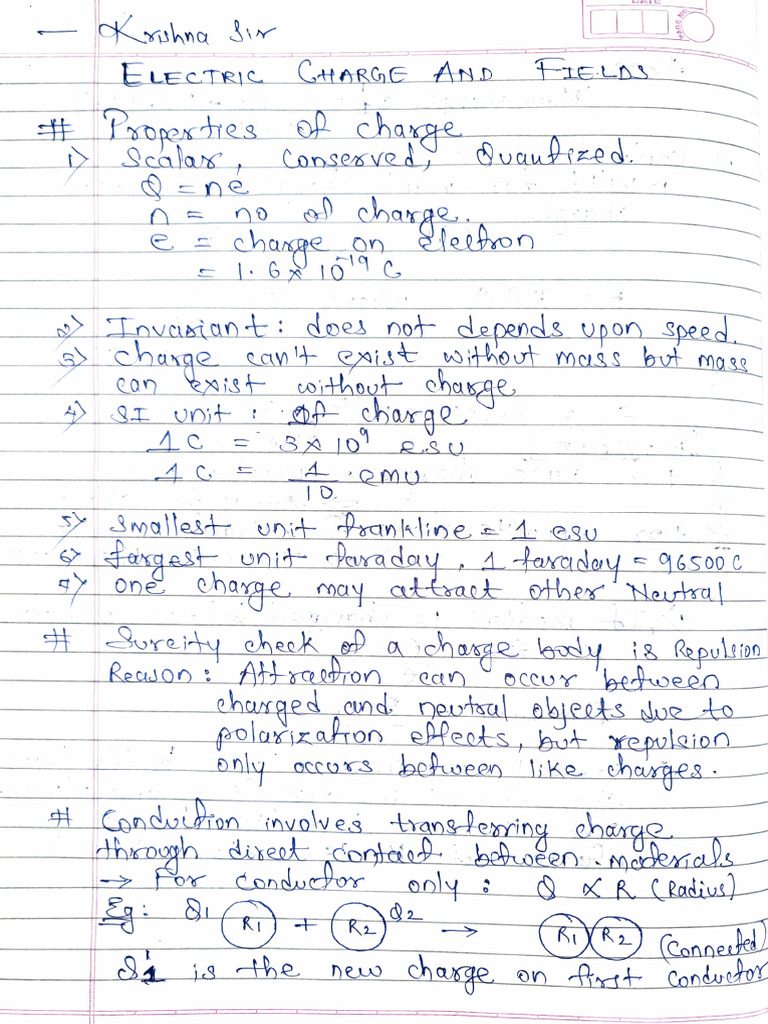 — Krishna Sir
DATE
PAGE NO.
ELECTRIC CHARGE AND FIELDS
# Properties of charge
1) Scalar, conserved, Quantized.
Q = ne
n = no of charge.
e = charge on electron
= 1.6 × 10⁻¹⁹ C
2) Invariant : does not depends upon speed.
3) charge can't exist without mass but mass
can exist without charge
4) SI unit : of charge
1 C = 3×10⁹ esu
1 C = 1/10 emu
5) smallest unit frankline = 1 esu
6) largest unit faraday, 1 faraday = 96500 C
7) one charge may attract other Neutral
# Sureity check of a charge body is Repulsion
Reason : Attraction can occur between
charged and neutral objects due to
polarization effects, but repulsion
only occurs between like charges.
# Conduction involves transferring charge
through direct contact between materials
→ For conductor only : Q ∝ R (Radius)
Eg: Q1 R1 + R2 Q2 → R1 R2 (Connected)
is the new charge on first conductor